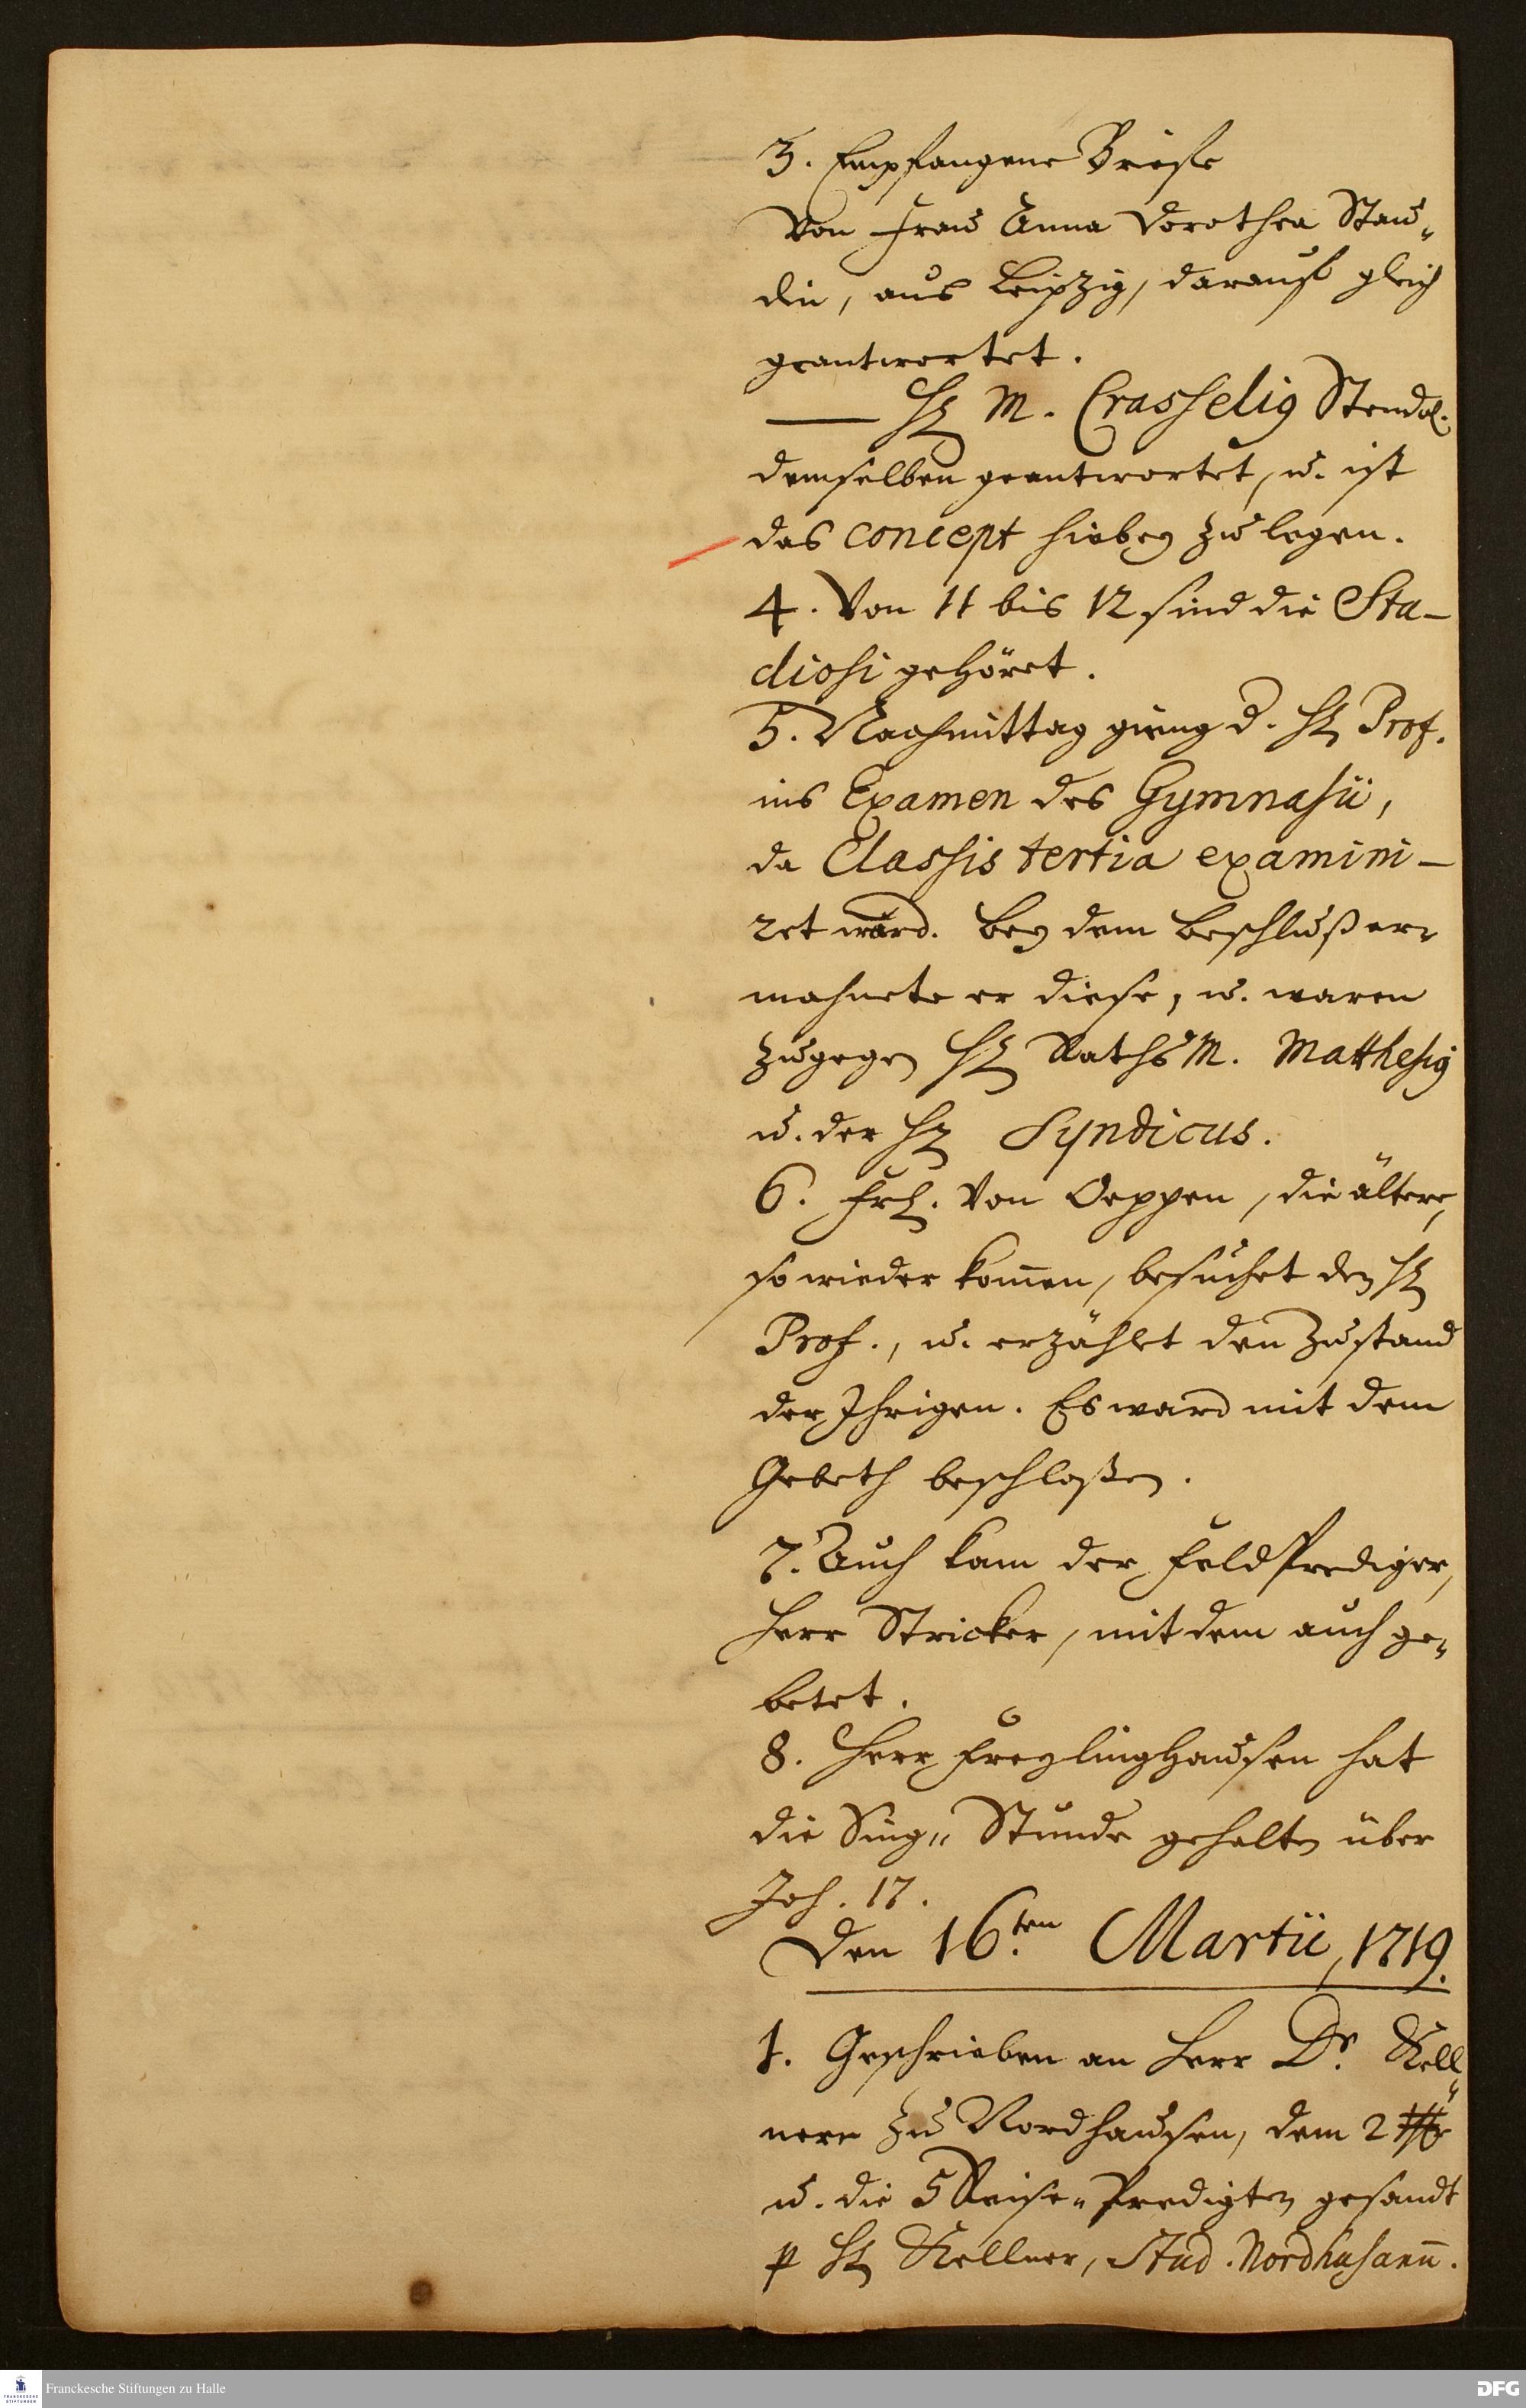 3. Empfangene Briefe
Von Frau Anna Dorothea Stau„
din, aus Leipzig, darauf gleich
geantwortet.
— H M. Crasselig Stendal.
demselben geantwortet, u. ist
das concept hiebey zu legen.
4. Von 11 bis 12 sind die Stu-
diosi gehöret.
5. Nachmittag gieng d. H Prof.
ins Examen des Gymnasii,
da Classis tertia examini-
ret ward. Bey dem Beschluß er„
mahnete er diese, u. waren
zugegen H RathsM. Matthesig
u. der H Syndicus.
6. Frl. von Oeppen, die ältere,
so wieder komen, besuchet den H
Prof., u. erzählet den Zustand
der Ihrigen. Es ward mit dem
Gebeth beschloßen.
7. Auch kam der FeldPrediger,
Herr Stricker, mit dem auch ge„
betet.
8. Herr Freylinghausen hat
die Sing„ Stunde gehalten über
Joh. 17.
Den 16.ten Martii, 1719.
1. Geschrieben an Herr Dr. Kell„
nern zu Nordhausen, dem 2
u. die 5 Reise„Predigten gesandt
p H Kellner, Stud. Nordhusanū.
Franckesche Stiftungen zu Halle
FRANCKESCHE STIFTUNGEN
DFG